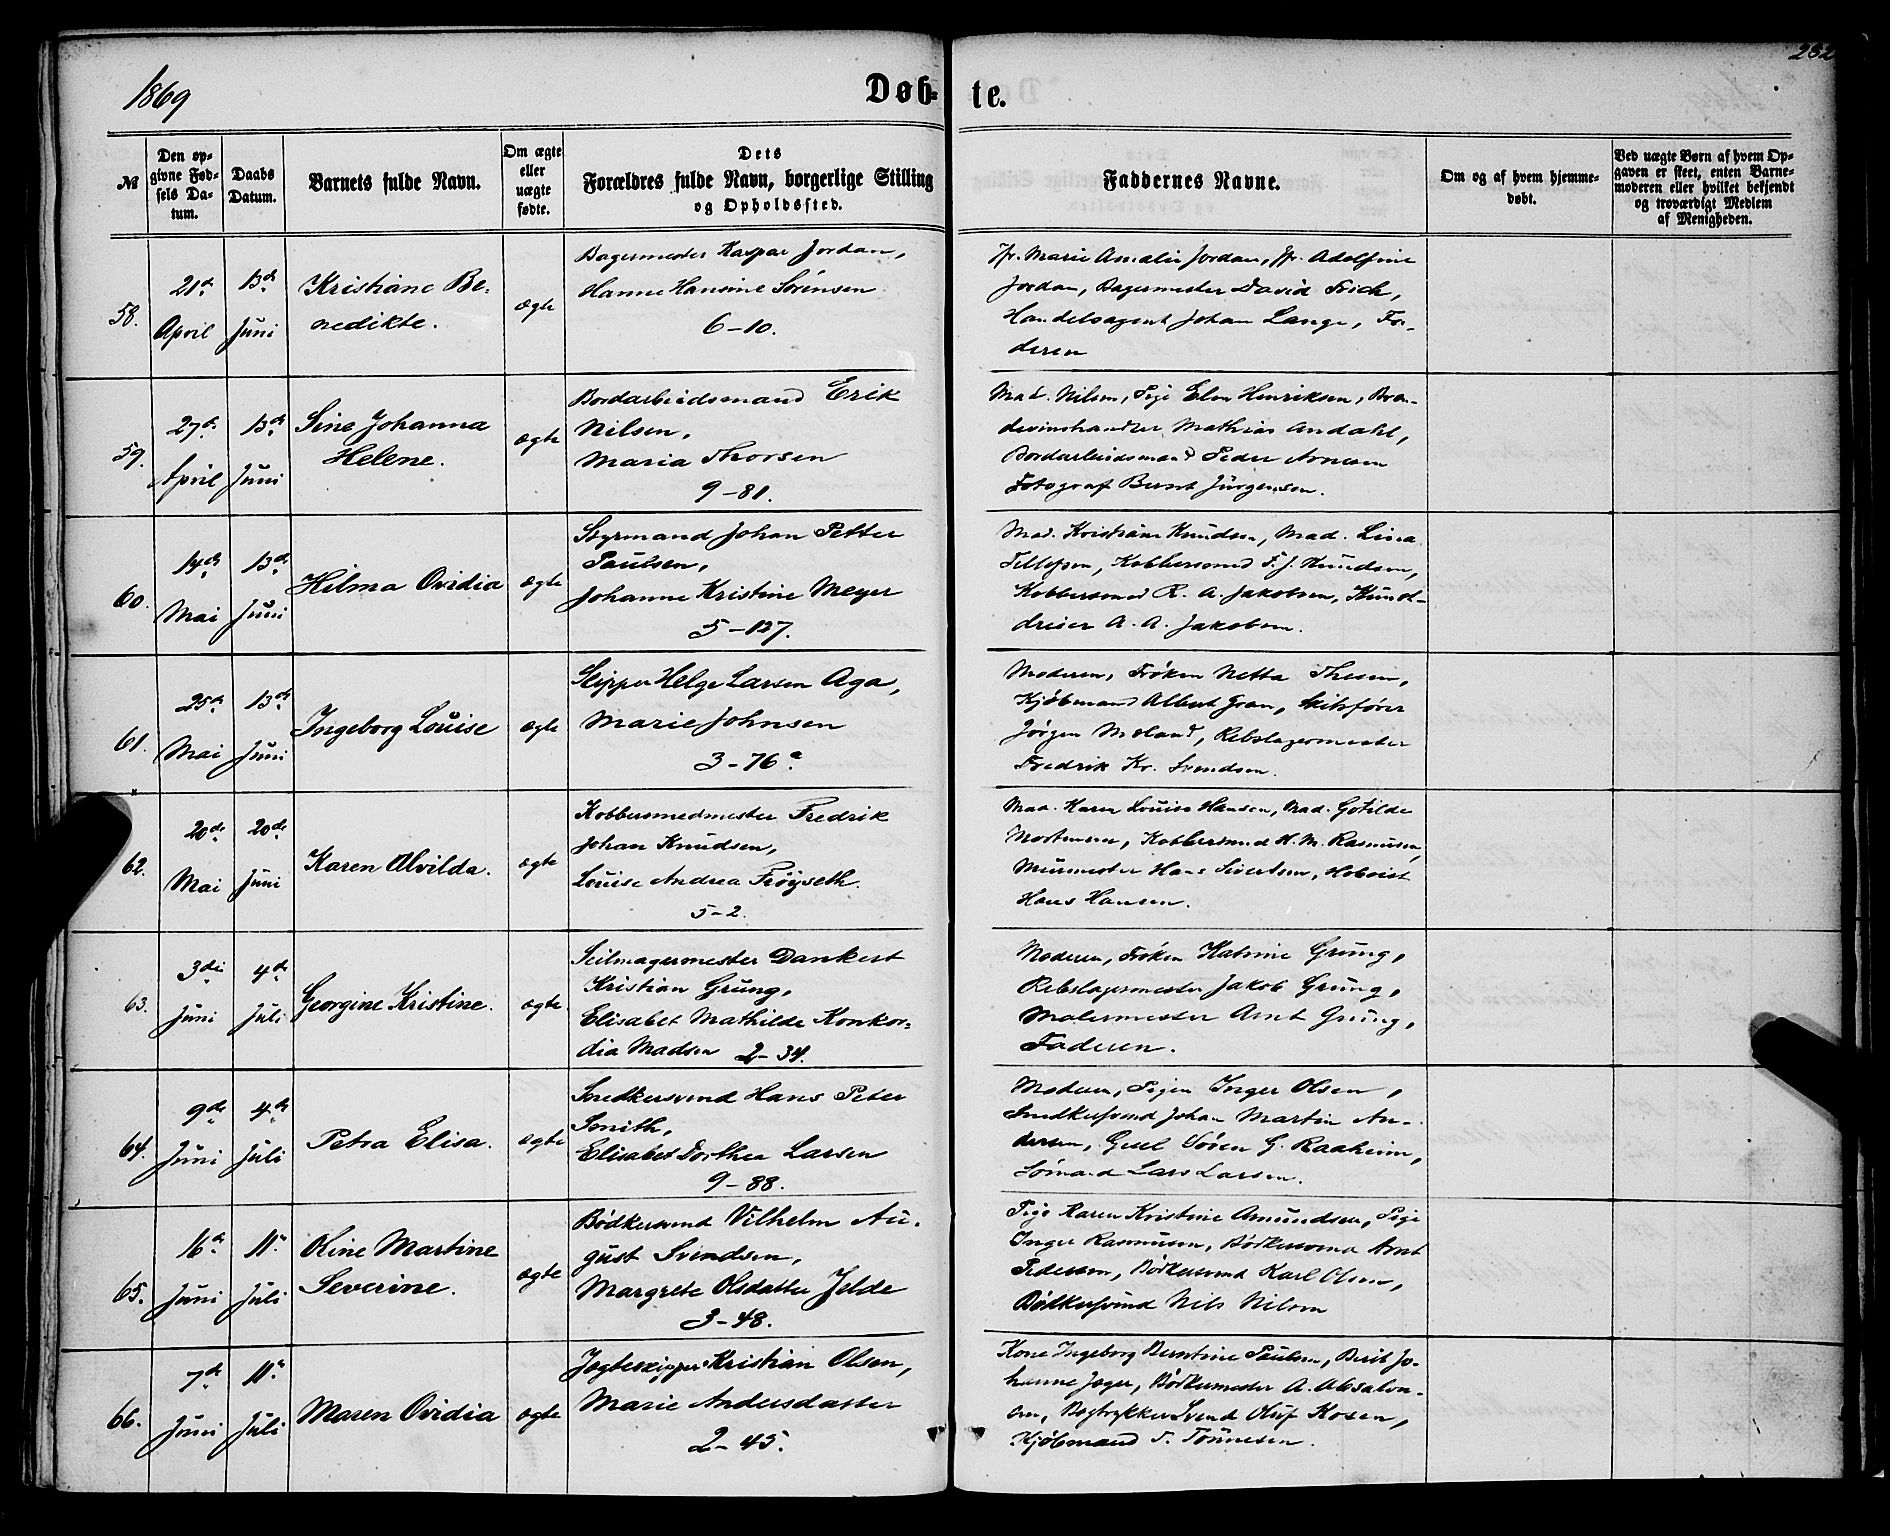 1869
Døb-
te.
252
№
Den op-
givne Fød-
sels Da-
tum.
Daabs
Datum.
Barnets fulde Navn.
Om ægte
eller
uægte
fødte.
Dets
Forældres fulde Navn, borgerlige Stilling
og Opholdssted.
Faddernes Navne.
Om og af hvem hjemme-
døbt.
Ved uægte Børn af hvem Op-
gaven er skeet, enten Barne-
moderen eller hvilket bekjendt
og troværdigt Medlem
af Menigheden.
58.
21de
April
13de
Juni
Kristiane Be-
nedikte.
ægte
Bagermester Kaspar Jordan,
Hanne Hansine Sørensen
6-10.
Jfr. Marie Amalie Jordan, Jfr. Adolfine
Jordan, Bagermester David Frich,
Handelsagent Johan Lange, Fa-
deren
59.
27de
April
13de
Juni
Sine Johanna
Helene.
ægte
Bordarbeidsmand Erik
Nilsen,
Maria Thorsen
9-81.
Mad. Nilsen, Pige Elen Henriksen, Bræn-
devinshandler Mathias Andahl,
Bordarbeidsmand Peder Arnesen
Fotograf Bernt Jürgensen.
60.
14de
Mai
13de
Juni
Hilma Ovidia
ægte
Styrmand Johan Petter
Paulsen,
Johanne Kristine Meyer
5-127.
Mad. Kristiane Knudsen, Mad. Lina
Tellefsen, Kobbersmed F. J. Knudsen,
Kobbersmed R. A. Jakobsen, Kunst-
dreier A. A. Jakobsen.
61.
25de
Mai
13de
Juni
Ingeborg Louise
ægte
Skipper Helge Larsen Aga,
Marie Johnsen
3-76a.
Moderen, Frøken Netta Thesen,
Kjøbmand Albert Gran, Skibsfører
Jørgen Moland, Rebslagermester
Fredrik Kr. Svendsen.
62.
20de
Mai
20de
Juni
Karen Alvilda.
ægte
Kobbersmedmester Fredrik
Johan Knudsen,
Louise Andrea Frøyseth.
5-2.
Mad. Karen Louise Hansen, Mad. Gotilde
Mortensen, Kobbersmed H. M. Rasmusen,
Murmester Hans Sivertsen, Hoboist
Hans Hansen.
63.
3die
Juni
4de
Juli
Georgine Kristine.
ægte
Seilmagermester Dankert
Kristian Grung,
Elisabet Mathilde Konkor-
dia Madsen 2-34.
Moderen, Frøken Katrine Grung,
Rebslagermester Jakob Grung,
Malermester Arnt Grung,
Faderen.
64.
9de
Juni
4de
Juli
Petra Elisa.
ægte
Snedkersvend Hans Peter
Smith,
Elisabet Dorthea Larsen
9-88.
Moderen, Pigen Inger Olsen,
Snedkersvend Johan Martin An-
dersen, Gesel Søren G. Raaheim,
Sømand Lars Larsen.
65.
16de
Juni
11te
Juli
Oline Martine
Severine.
ægte
Bødkersvend Vilhelm Au-
gust Svendsen,
Margrete Olsdatter Jelde
3-48.
Pige Karen Kristine Amundsen, Pige
Inger Rasmusen, Bødkersvend Arnt
Pedersen, Bødkersvend Karl Olsen,
Bødkersvend Nils Nilsen
66.
7de
Juni
11te
Juli
Maren Ovidia
ægte
Jægteskipper Kristian Olsen,
Marie Andersdatter
2-45.
Kone Ingeborg Berntine Paulsen, Berit Jo-
hanne Jæger, Bødkermester A. Absalon-
sen, Bogtrykker Svend Oluf Rosen,
Kjøbmand T. Tønnesen.